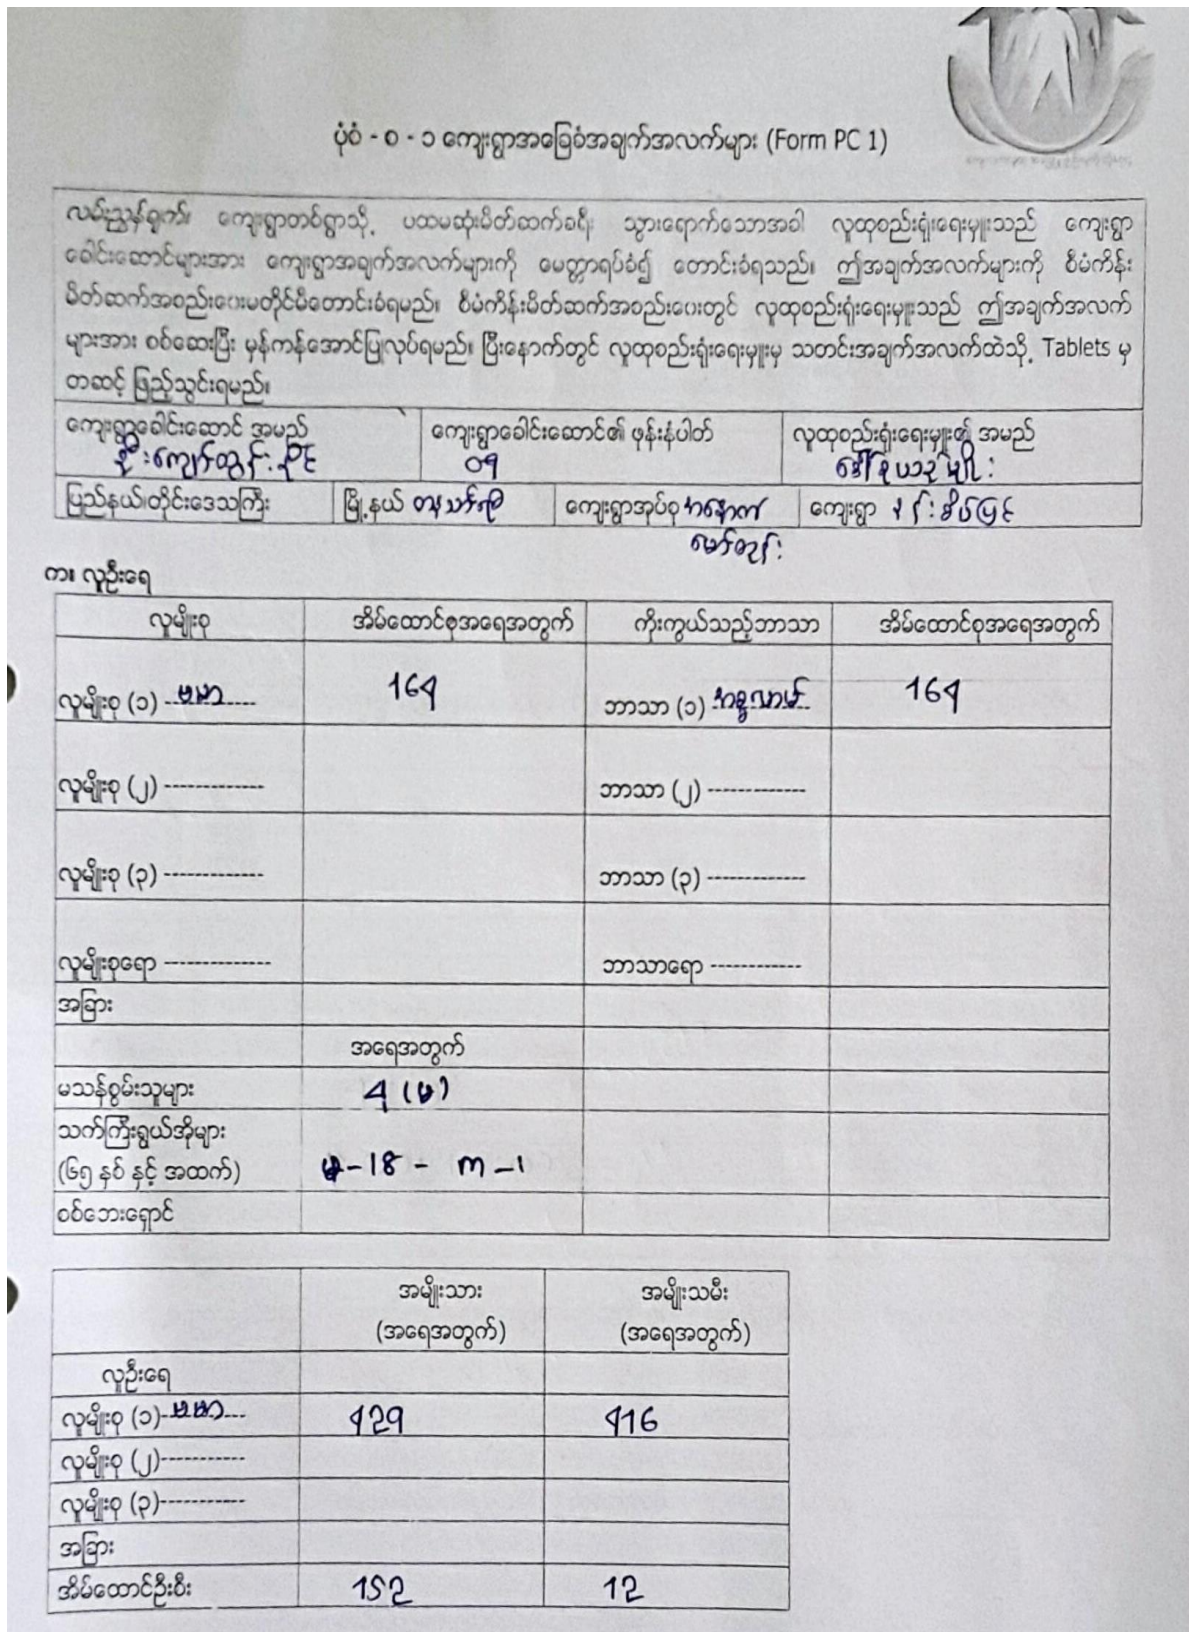 ပုံစံ - စ - ၁ ကျေးရွာအခြေခံအချက်အလက်များ (Form PC 1)
လမ်းညွှန်ချက်၊ ကျေးရွာတစ်ရွာသို့ ပထမဆုံးမိတ်ဆက်ခရီး သွားရောက်သောအခါ လူထုစည်းရုံးရေးမှူးသည် ကျေးရွာ
ခေါင်းဆောင်များအား ကျေးရွာအချက်အလက်များကို မေတ္တာရပ်ခံ၍ တောင်းခံရသည်။ ဤအချက်အလက်များကို စီမံကိန်း
မိတ်ဆက်အစည်းဝေးမတိုင်မီတောင်းခံရမည်။ စီမံကိန်းမိတ်ဆက်အစည်းဝေးတွင် လူထုစည်းရုံးရေးမှူးသည် ဤအချက်အလက်
များအား စစ်ဆေးပြီး မှန်ကန်အောင်ပြုလုပ်ရမည်။ ပြီးနောက်တွင် လူထုစည်းရုံးရေးမှူးမှ သတင်းအချက်အလက်ထဲသို့ Tablets မှ
တဆင့် ဖြည့်သွင်းရမည်။
ကျေးရွာခေါင်းဆောင် အမည် ကျေးရွာခေါင်းဆောင်၏ ဖုန်းနံပါတ် လူထုစည်းရုံးရေးမှူး၏ အမည်
ဦးကျော်ထွန်းနိုင် 09
ပြည်နယ်၊တိုင်းဒေသကြီး မြို့နယ် တနင်္သာရီ ကျေးရွာအုပ်စု အနောက် ကျေးရွာ
က။ လူဦးရေ
လူမျိုးစု အိမ်ထောင်စုအရေအတွက် ကိုးကွယ်သည့်ဘာသာ အိမ်ထောင်စုအရေအတွက်
လူမျိုးစု (၁) ဗမာ 164 ဘာသာ (၁) အစ္စလာမ် 164
လူမျိုးစု (၂) ------------- ဘာသာ (၂) -------------
လူမျိုးစု (၃) ------------- ဘာသာ (၃) -------------
လူမျိုးစုရော -------------- ဘာသာရော ------------
အခြား
အရေအတွက်
မသန်စွမ်းသူများ 4 (မ)
သက်ကြီးရွယ်အိုများ
(၆၅ နှစ် နှင့် အထက်) မ-18 -
စစ်ဘေးရှောင်
အမျိုးသား အမျိုးသမီး
(အရေအတွက်) (အရေအတွက်)
လူဦးရေ
လူမျိုးစု (၁)-ဗမာ--- 429 416
လူမျိုးစု (၂)-----------
လူမျိုးစု (၃)-----------
အခြား
အိမ်ထောင်ဦးစီး 152 12